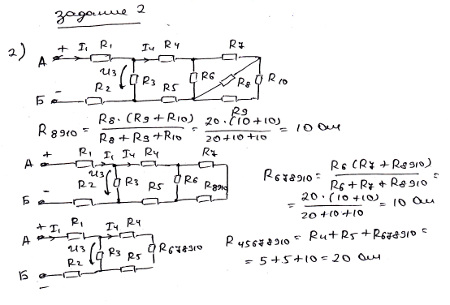 задание 2
2)
+ I₁ R₁ I₄ R₄ R₇
А
U₃ R₃ R₆ R₈ R₁₀
Б - R₂ R₅ R₉
R₈₉₁₀ = R₈·(R₉+R₁₀) / R₈+R₉+R₁₀ = 20·(10+10) / 20+10+10 = 10 Ом
А + I₁ R₁ I₄ R₄ R₇
U₃ R₃ R₆ R₈₉₁₀
Б - R₂ R₅
R₆₇₈₉₁₀ = R₆(R₇+R₈₉₁₀) / R₆+R₇+R₈₉₁₀ =
= 20·(10+10) / 20+10+10 = 10 Ом
А + I₁ R₁ I₄ R₄
U₃ R₃ R₆₇₈₉₁₀
Б - R₂ R₅
R₄₅₆₇₈₉₁₀ = R₄+R₅+R₆₇₈₉₁₀ =
= 5+5+10 = 20 Ом